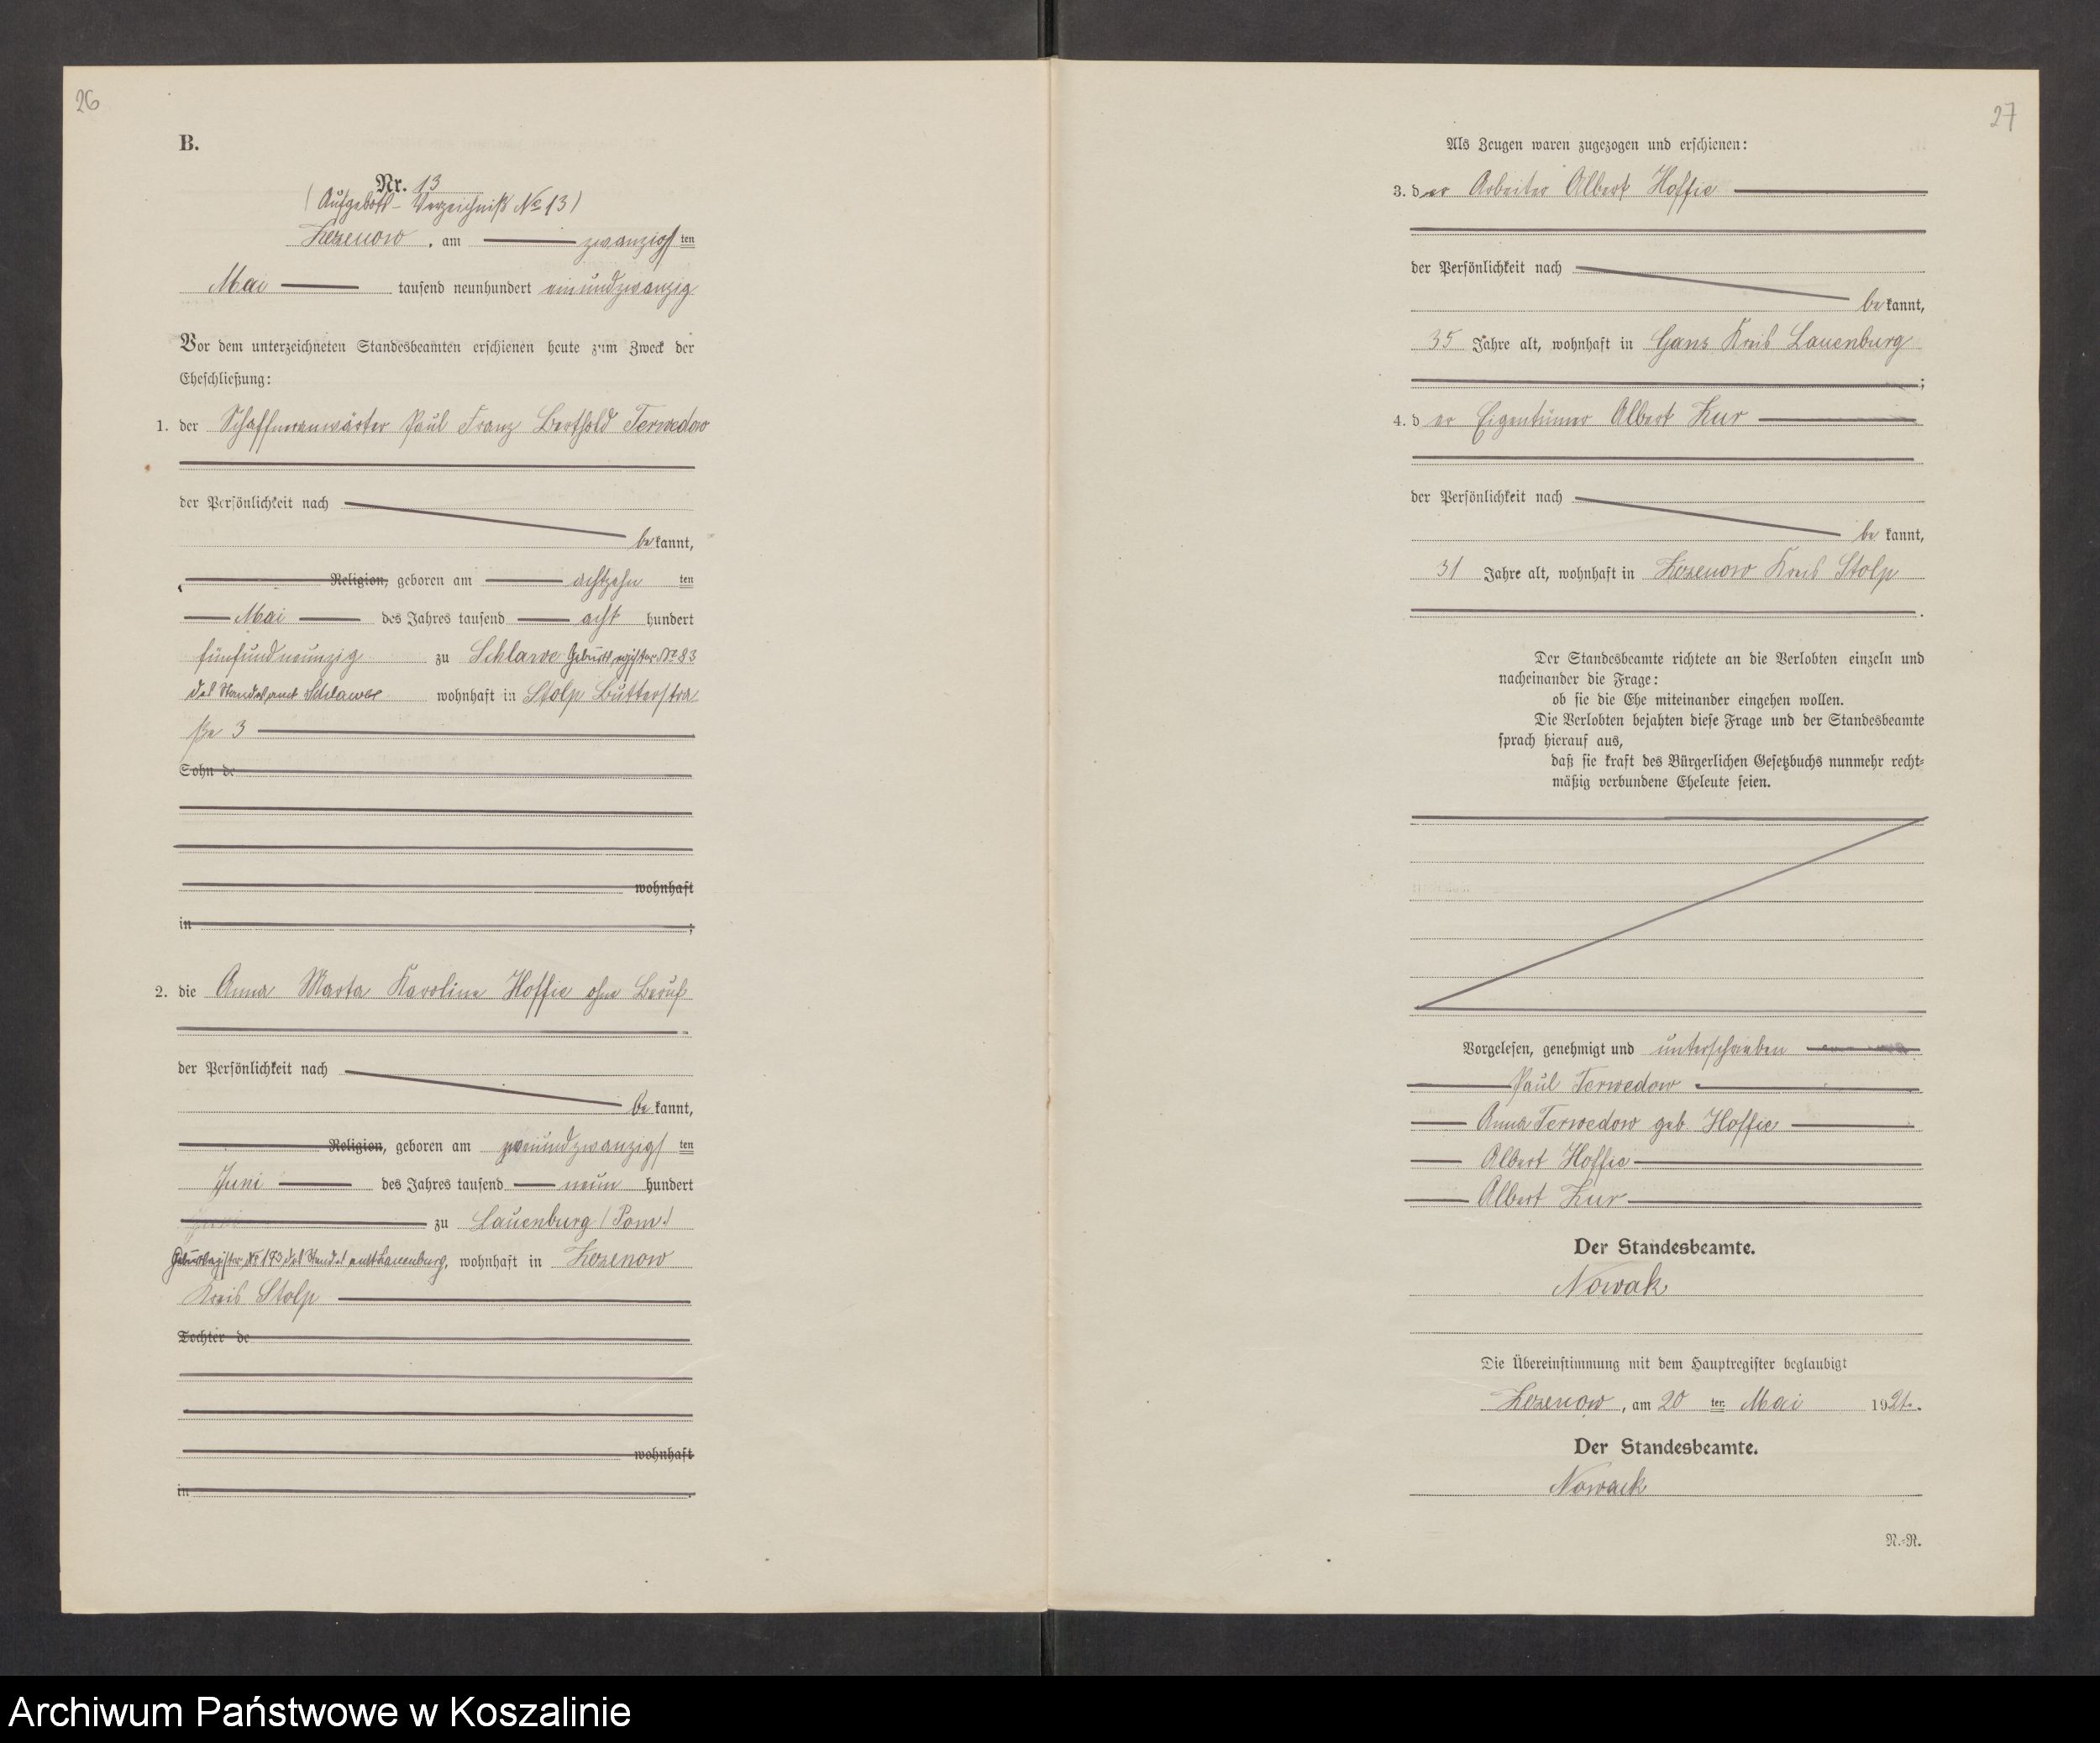 26
B.
Nr. 13
(Aufgebots-Verzeichniß No 13)
Zezenow, am zwanzigsten
Mai tausend neunhundert einundzwanzig
Vor dem unterzeichneten Standesbeamten erschienen heute zum Zweck der
Eheschließung:
1. der Schaffneranwärter Paul Franz Berthold Terwedow
der Persönlichkeit nach
bekannt,
Religion, geboren am achtzehn ten
Mai des Jahres tausend acht hundert
fünfundneunzig zu Schlawe Geburtsregister No 83
des Standesamt Schlawe wohnhaft in Stolp Butterstra
ße 3
Sohn de
wohnhaft
in ;
2. die Anna Marta Karoline Hoffie ohne Beruf
der Persönlichkeit nach
bekannt,
Religion, geboren am zweiundzwanzigsten
Juni des Jahres tausend neun hundert
zu Lauenburg (Pom.)
Geburtsregister No 173 des Standesamts Lauenburg, wohnhaft in Zezenow
Kreis Stolp
Tochter de
wohnhaft
in .
27
Als Zeugen waren zugezogen und erschienen:
3. der Arbeiter Albert Hoffie
der Persönlichkeit nach
bekannt,
35 Jahre alt, wohnhaft in Gans Kreis Lauenburg
;
4. der Eigentümer Albert Zur
der Persönlichkeit nach
bekannt,
31 Jahre alt, wohnhaft in Zezenow Kreis Stolp
.
Der Standesbeamte richtete an die Verlobten einzeln und
nacheinander die Frage:
ob sie die Ehe miteinander eingehen wollen.
Die Verlobten bejahten diese Frage und der Standesbeamte
sprach hierauf aus,
daß sie kraft des Bürgerlichen Gesetzbuchs nunmehr recht-
mäßig verbundene Eheleute seien.
Vorgelesen, genehmigt und unterschrieben
Paul Terwedow
Anna Terwedow geb. Hoffie
Albert Hoffie
Albert Zur
Der Standesbeamte.
Nowak
Die Übereinstimmung mit dem Hauptregister beglaubigt
Zezenow, am 20 ten Mai 1921.
Der Standesbeamte.
Nowack
N.-R.
Archiwum Państwowe w Koszalinie